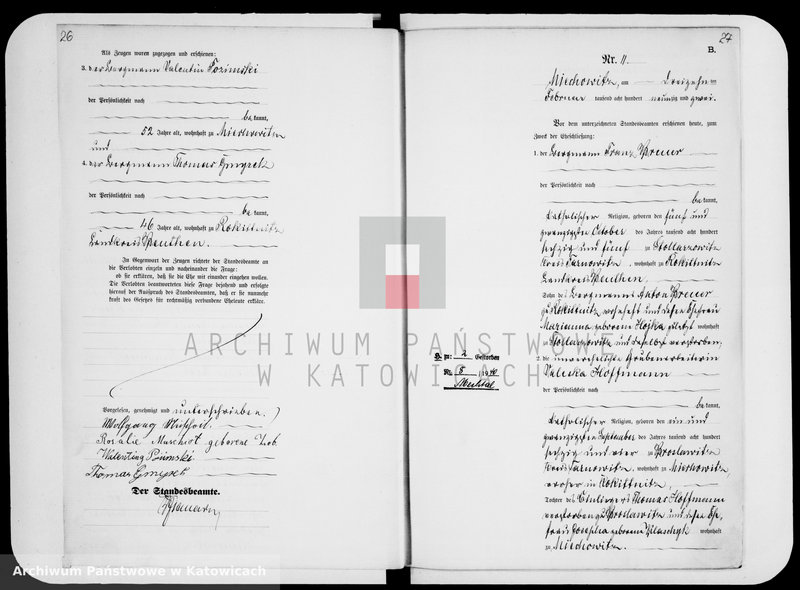 26
Als Zeugen waren zugezogen und erschienen:
3. der Bergmann Valentin
der Persönlichkeit nach
be kannt,
52 Jahre alt, wohnhaft zu Miechowitz
und
4. der Bergmann Thomas
der Persönlichkeit nach
be kannt,
46 Jahre alt, wohnhaft zu Rokittnitz
Landkreis Beuthen.
In Gegenwart der Zeugen richtete der Standesbeamte an
die Verlobten einzeln und nacheinander die Frage:
ob sie erklären, daß sie die Ehe mit einander eingehen wollen.
Die Verlobten beantworteten diese Frage bejahend und erfolgte
hierauf der Ausspruch des Standesbeamten, daß er sie nunmehr
kraft des Gesetzes für rechtmäßig verbundene Eheleute erkläre.
Vorgelesen, genehmigt und unterschrieben.
Wolfgang
Rosalie geborene
Thomas
Der Standesbeamte.
27
B.
Nr. 11.
Miechowitz, am dreizehnten
Februar tausend acht hundert neunzig und zwei.
Vor dem unterzeichneten Standesbeamten erschienen heute, zum
Zweck der Eheschließung:
1. der Bergmann Franz Breuer
der Persönlichkeit nach
be kannt,
katholischer Religion, geboren den fünf und
zwanzigsten October des Jahres tausend acht hundert
sechzig und fünf zu Stollarzowitz
Kreis Tarnowitz, wohnhaft zu Rokittnitz
Landkreis Beuthen,
Sohn des Bergmanns Anton Breuer
zu Rokittnitz wohnhaft und dessen Ehefrau
Marianna geborene Hojka zuletzt wohnhaft
zu Stollarzowitz und daselbst verstorben;
2. die unverehelichte Grubenarbeiterin
Valeska Hoffmann
der Persönlichkeit nach
be kannt,
katholischer Religion, geboren den ein und
zwanzigsten September des Jahres tausend acht hundert
sechzig und vier zu Broslawitz
Kreis Tarnowitz, wohnhaft zu Miechowitz,
vorher in Rokittnitz,
Tochter des Thomas Hoffmann
verstorben zu Broslawitz und dessen Ehe-
frau Josepha geborene wohnhaft
zu Miechowitz.
nr: 2 Gestorben
Nr. 8 /1940
ARCHIWUM PAŃSTWOWE
W KATOWICACH
Archiwum Państwowe w Katowicach